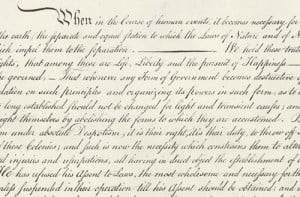 When in the Course of human events, it becomes necessary for
the earth, the separate and equal station to which the Laws of Nature and of N
which impel them to the separation. We hold these truth
ights, that among these are Life, Liberty and the pursuit of Happiness.
he governed, — That whenever any Form of Government becomes destructive o
dation on such principles and organizing its powers in such form, as to
long established should not be changed for light and transient causes; and
right themselves by abolishing the forms to which they are accustomed. B
em under absolute Despotism, it is their right, it is their duty, to throw off
these Colonies; and such is now the necessity which constrains them to alte
d injuries and usurpations, all having in direct object the establishment of
He has refused his Assent to Laws, the most wholesome and necessary for th
unless suspended in their operation till his Assent should be obtained; and